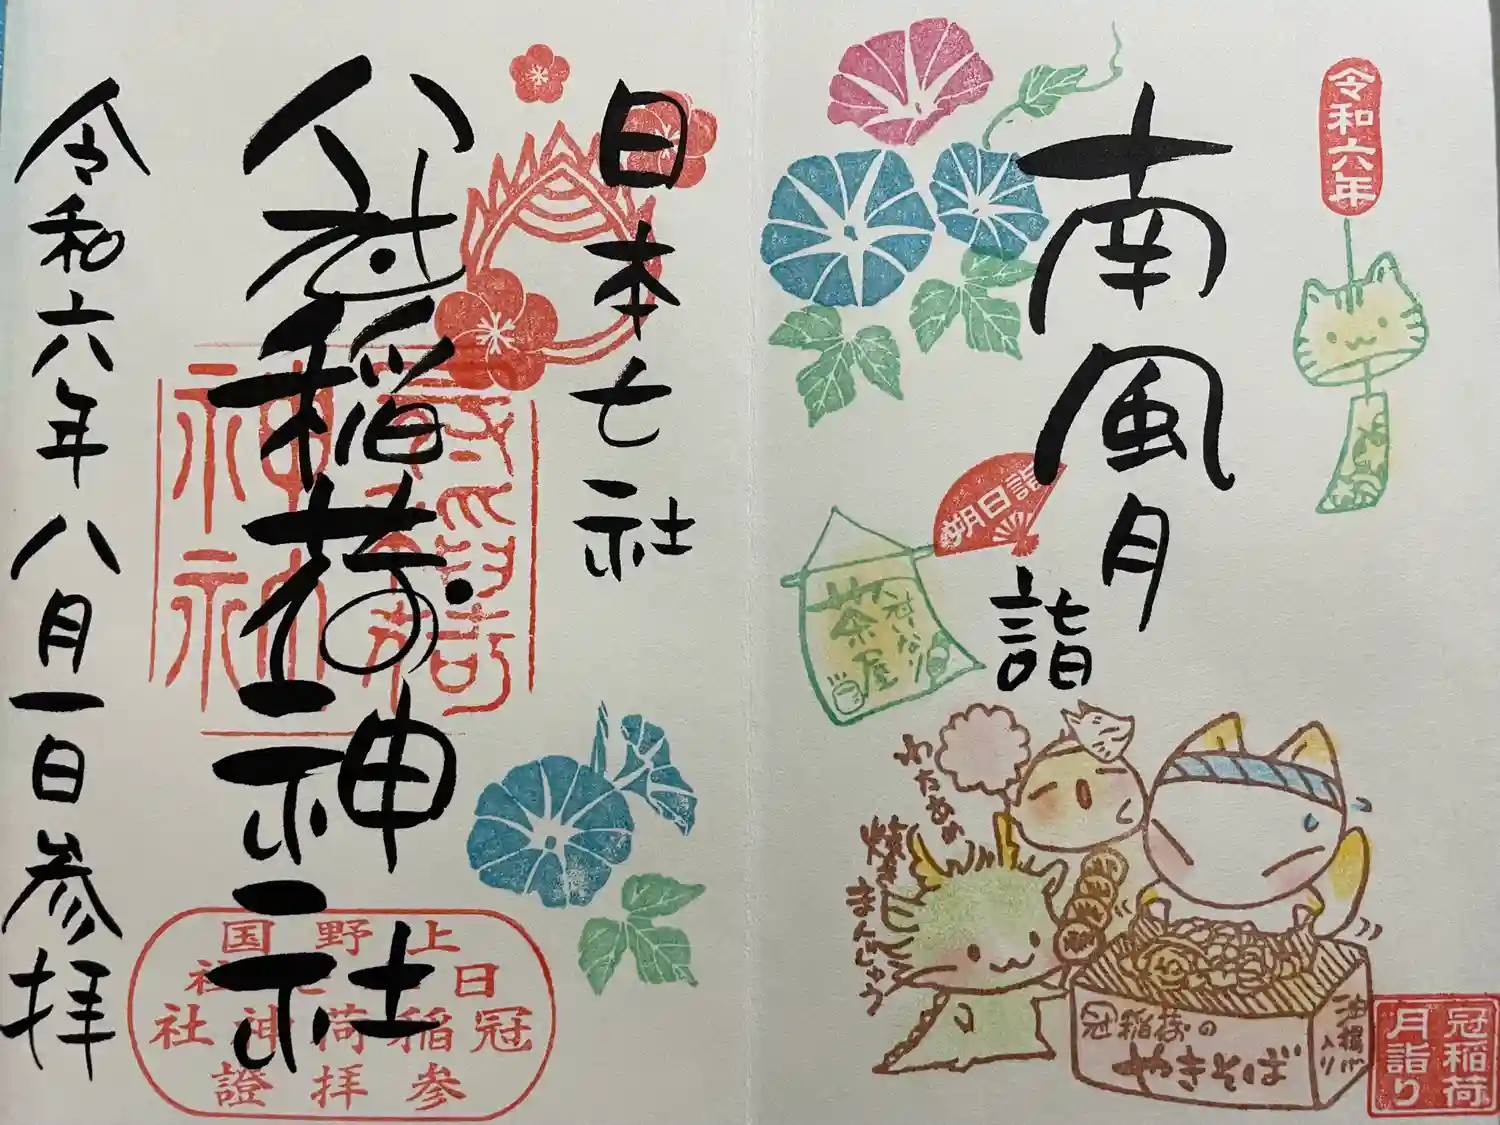 令和六年
南風月
詣
朔日詣
茶屋
わたあめ
焼き
まんじゅう
冠稲荷の
やきそば
入り
冠稲荷
月詣り
日本七社
冠稲荷神社
令和六年八月一日参拝
上野国
日本七社
冠稲荷神社
参拝證